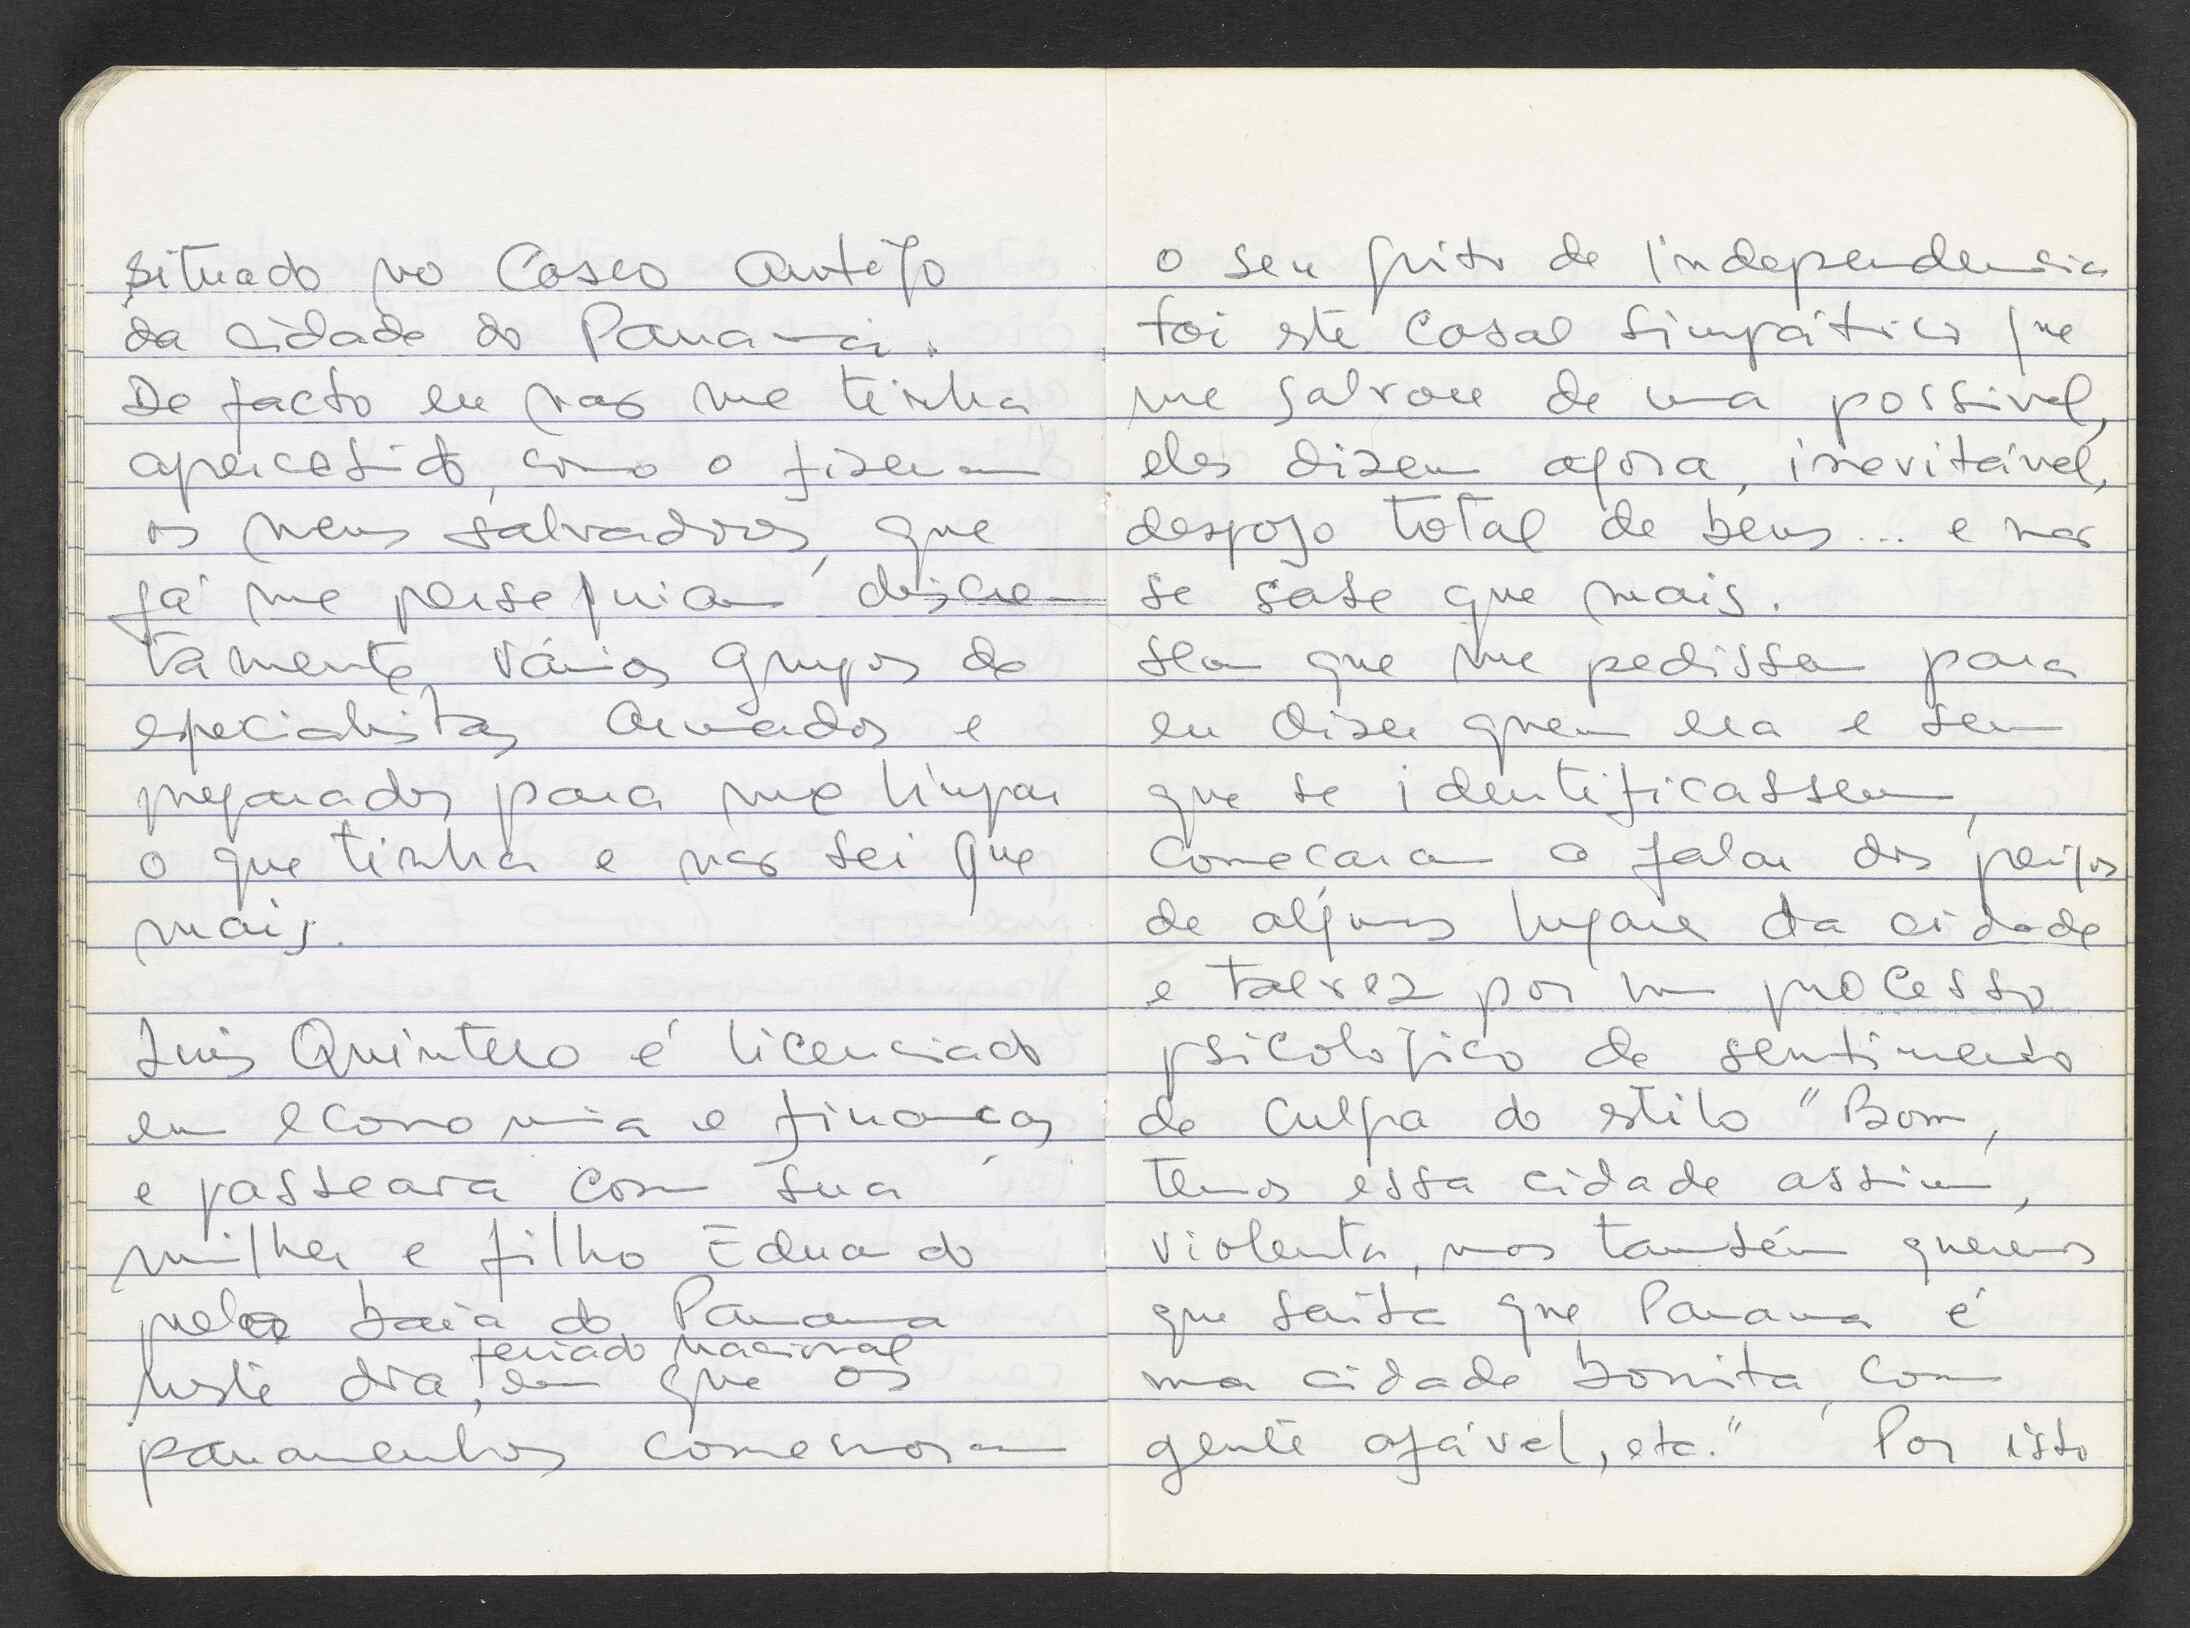 situado no Casco Antigo
da cidade do Panamá.
De facto eu nao me tinha
apercebido, como o fizeram
os meus salvadores, que
já me perseguiam discre-
tamente vários grupos de
especialistas armados e
preparados para me limpar
o que tinha e nao sei que
mais.
Luis Quintero é licenciado
em economia e finanças
e passeara com sua
mulher e filho Eduardo
pela baia do Panama
feriado nacional
neste dia, em que os
panamenhos comemoram
o seu grito de independencia
foi este casal simpático que
me salvou de uma possivel,
eles dizem agora, inevitável,
despojo total de bens... e nao
se sabe que mais.
Sem que me pedissem para
eu dizer quem era e sem
que se identificassem,
começaram a falar dos perigos
de alguns lugares da cidade
e talvez por um processo
psicologico de sentimento
de culpa do estilo "Bom,
temos essa cidade assim,
violenta, mas também queremos
que saiba que Panama é
uma cidade bonita, com
gente afável, etc." Por isto